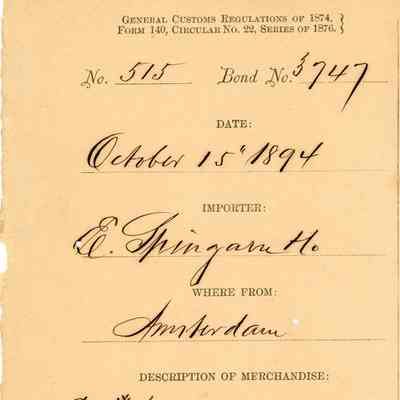 GENERAL CUSTOMS REGULATIONS OF 1874,
FORM 140, CIRCULAR NO. 22, SERIES OF 1876.
No. 515 Bond No. 3747
DATE:
October 15" 1894
IMPORTER:
E. Spingarn
WHERE FROM:
Amsterdam
DESCRIPTION OF MERCHANDISE: